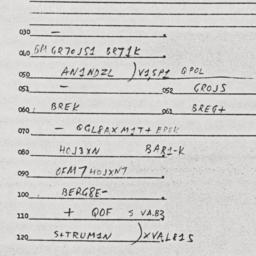 030 –
040 GM GR7OJS1 BR71K
050 AN1NDZL )V1,SP1 QPOL
051 – 052 GROJS
060 BREK 061 BREG+
070 – QGL8AXM1T+
080 HOJ3XN BAR1-K
090 OFM7HOJXN7
100 BERG8E–
110 + QOF S VA.B3
120 S+TRUM1N )XVAL81S